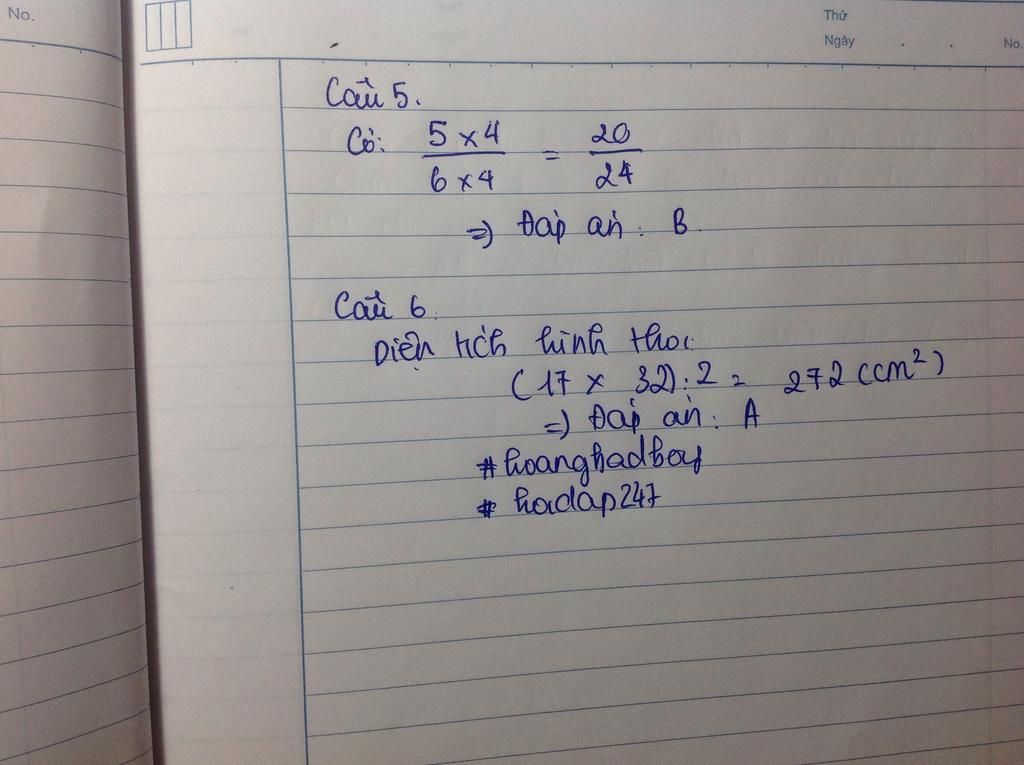 No.
Thứ
Ngày
No.
Câu 5.
Có: 5 x 4 / 6 x 4 = 20 / 24
=> Đáp án: B.
Câu 6.
Diện tích hình thoi:
(17 x 32) : 2 = 272 (cm²)
=> Đáp án: A
#hoangbadboy
# hoidap247